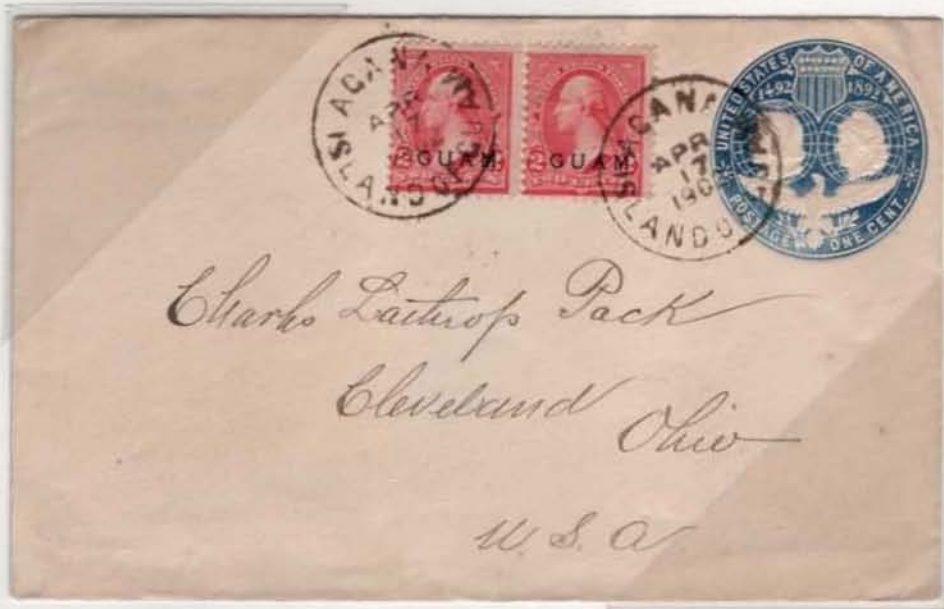 AGANA
APR
17
190
ISLAND OF GUAM
GUAM
GUAM
AGANA
APR
17
190
ISLAND O
UNITED STATES OF AMERICA
1492 1892
POSTAGE ONE CENT
Charles Lathrop Pack
Cleveland
Ohio
U. S. A.